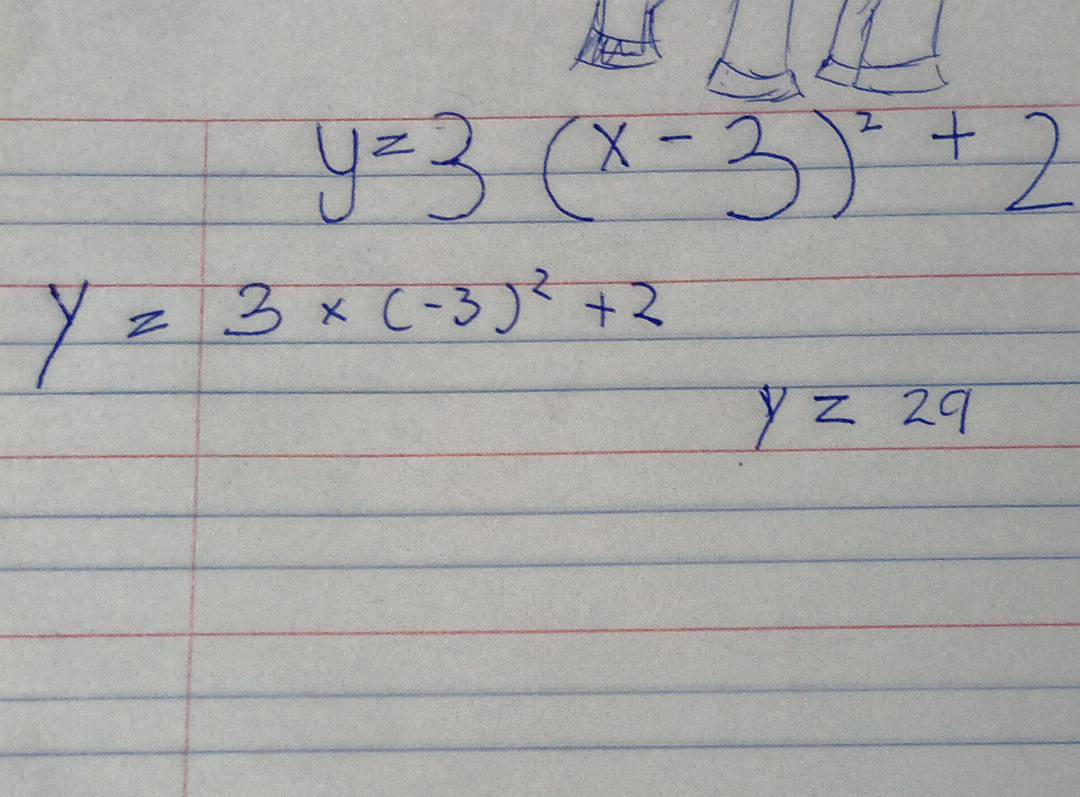 y = 3 (x - 3)² + 2
y = 3 × (-3)² + 2
y = 29